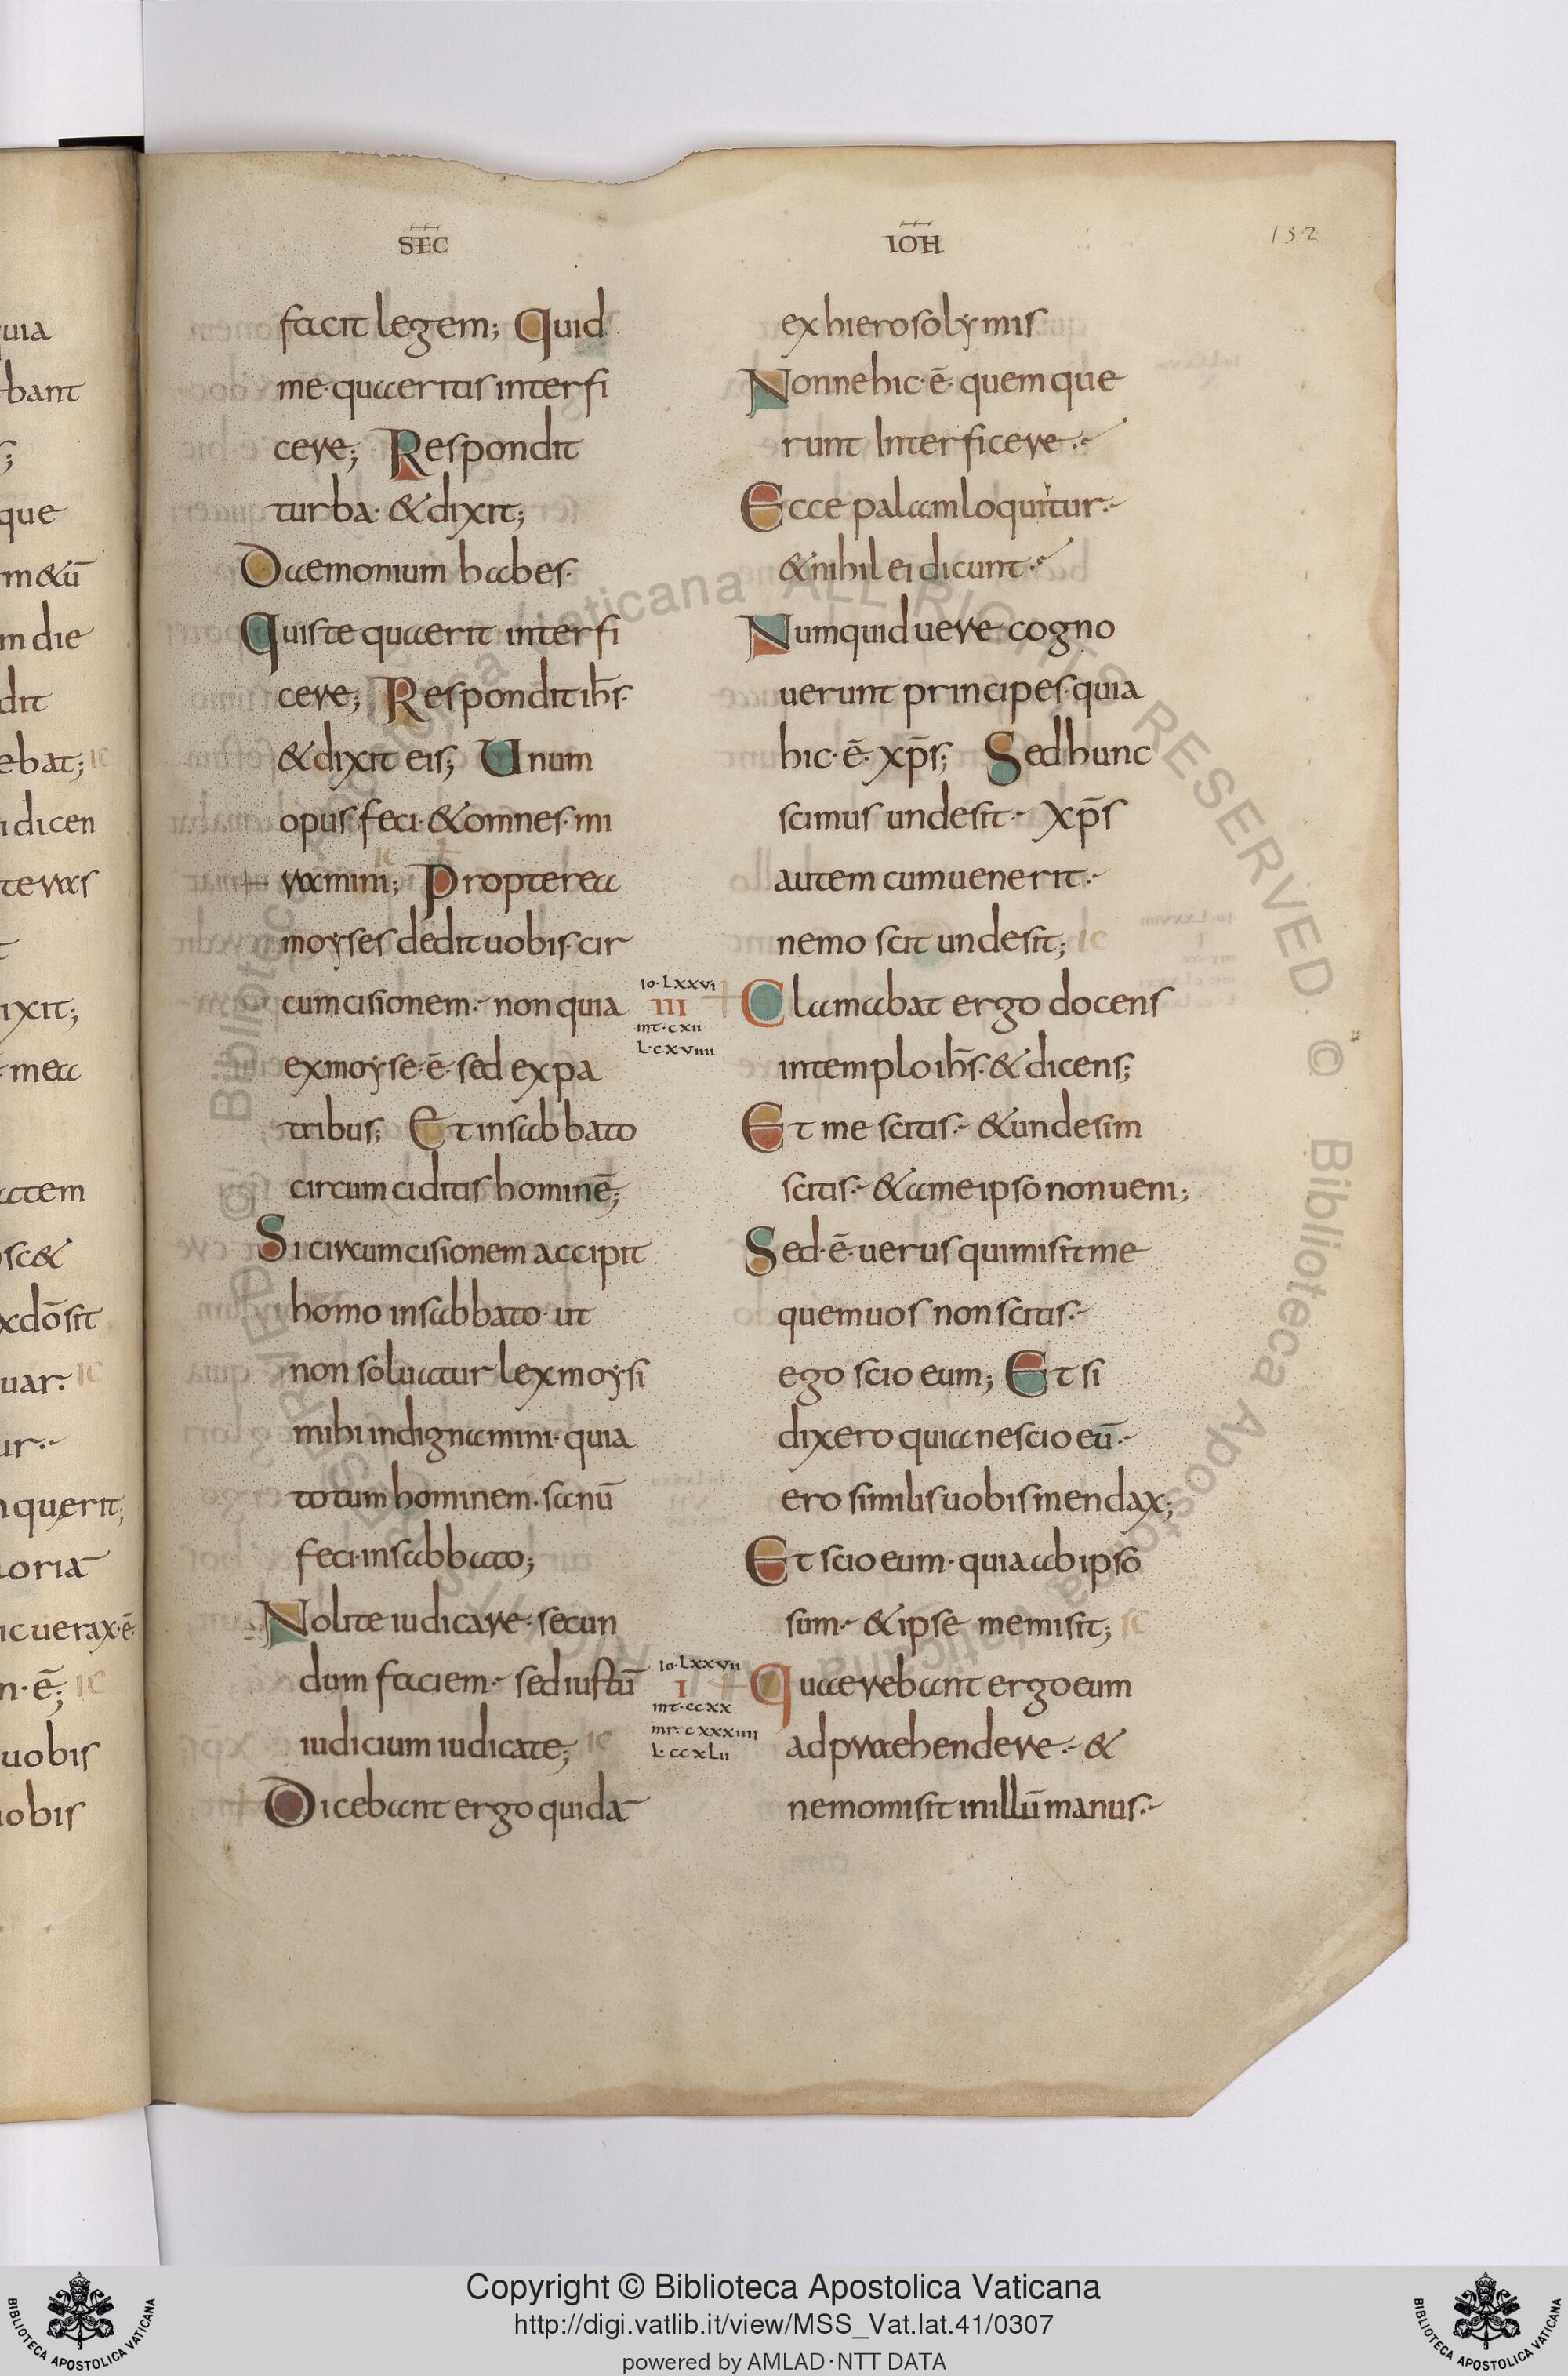 SEC
IOH
152
facit legem; Quid
me· quaeritis interfi
cere; Respondit
turba· & dixit;
Daemonium habes·
Quis te quaerit interfi
cere; Respondit ihs̄·
& dixit eis; Unum
opus feci· & omnes· mi
ramini; Propterea
moyses dedit uobis· cir
cumcisionem·- non quia
ex moyse· ē· sed ex pa
tribus; Et in sabbato
circumciditis hominē;
Si circumcisionem accipit
homo in sabbato· ut
non soluatur lex moysi
mihi indignamini· quia
totum hominem· sanū
feci· in sabbato;
Nolite iudicare· secun
dum faciem·- sed iustū
iudicium iudicate;
Dicebant ergo quidā
ex hierosolymis
Nonne hic· ē· quem que
runt Interficere·-
Ecce palam loquitur·-
& nihil ei dicunt·-
Numquid uere cogno
uerunt principes· quia
hic· ē· xp̄s; Sed hunc
scimus unde sit·- Xp̄s
autem cum uenerit·-
nemo scit unde sit;
Io· LXXVI
III
mt· cxii
L· cxviiii
Clamabat ergo docens
in templo ihs̄· & dicens;
Et me scitis·- & unde sim
scitis·- & a me ipso non ueni;
Sed· ē· uerus qui misit me
quem uos non scitis·-
ego scio eum; Et si
dixero quia nescio eū·-
ero similis uobis mendax;
Et scio eum· quia ab ipso
sum·- & ipse me misit;
Io· LXXVII
I
mt· ccxx
mr· cxxxiiii
L· ccxLii
Quaerebant ergo eum
adpraehendere·- &
nemo misit in illū manus·-
uia
bant
que
m & ū
m die
dit
ebat;
dicen
te ras
ixit;
mea
atem
osc&
x dō sit
uar·
ur·-
querit;
loriā
ic uerax· ē·
n· ē;
uobis
uobis
© Biblioteca Apostolica Vaticana ALL RIGHTS RESERVED
Copyright © Biblioteca Apostolica Vaticana
http://digi.vatlib.it/view/MSS_Vat.lat.41/0307
powered by AMLAD·NTT DATA
BIBLIOTECA APOSTOLICA VATICANA
BIBLIOTECA APOSTOLICA VATICANA